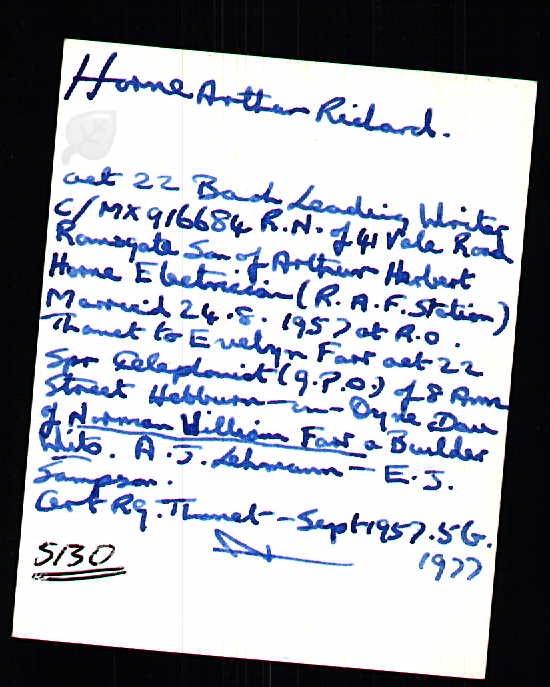 Horne Arthur Richard.
aet 22 Bach Leading Writer
C/MX916684 R.N. of 41 Vale Road
Ramsgate Son of Arthur Herbert
Horne Electrician (R.A.F. Station)
Married 24.8.1957 at R.O.
Thanet to Evelyn Farr aet 22
Spr Telephonist (G.P.O.) of 8 Ann
Street Hebburn-on-Tyne Daur
of Norman William Farr a Builder
Wits. A.J. Lehmann - E.J.
Sampson.
Cert Rg. Thanet - Sept 1957. 5G.
1977
5130